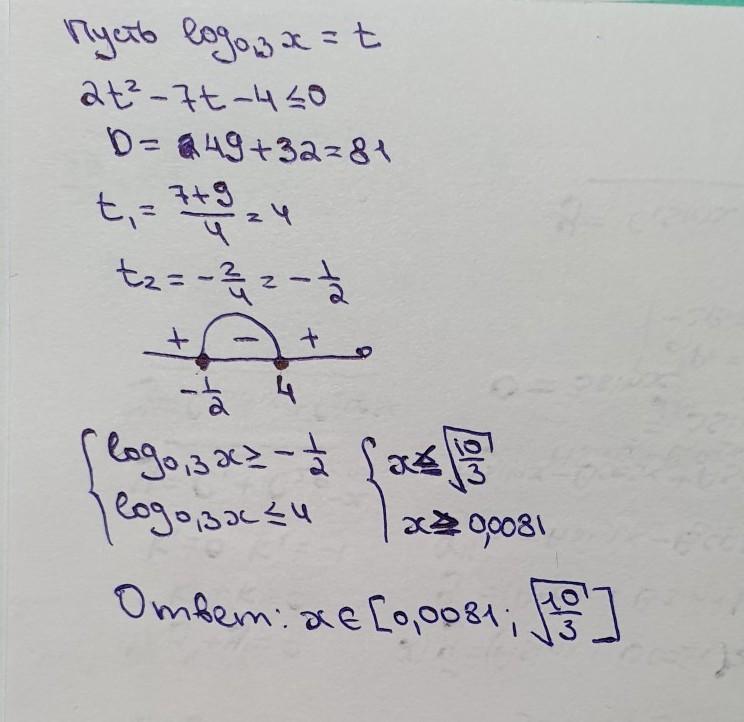 Пусть log₀,₃ x = t
2t² - 7t - 4 ≤ 0
D = 49 + 32 = 81
t₁ = (7+9)/4 = 4
t₂ = -2/4 = -1/2
+ - +
-1/2 4
{ log₀,₃ x ≥ -1/2 { x ≤ √(10/3)
log₀,₃ x ≤ 4 x ≥ 0,0081
Ответ: x ∈ [0,0081; √(10/3)]